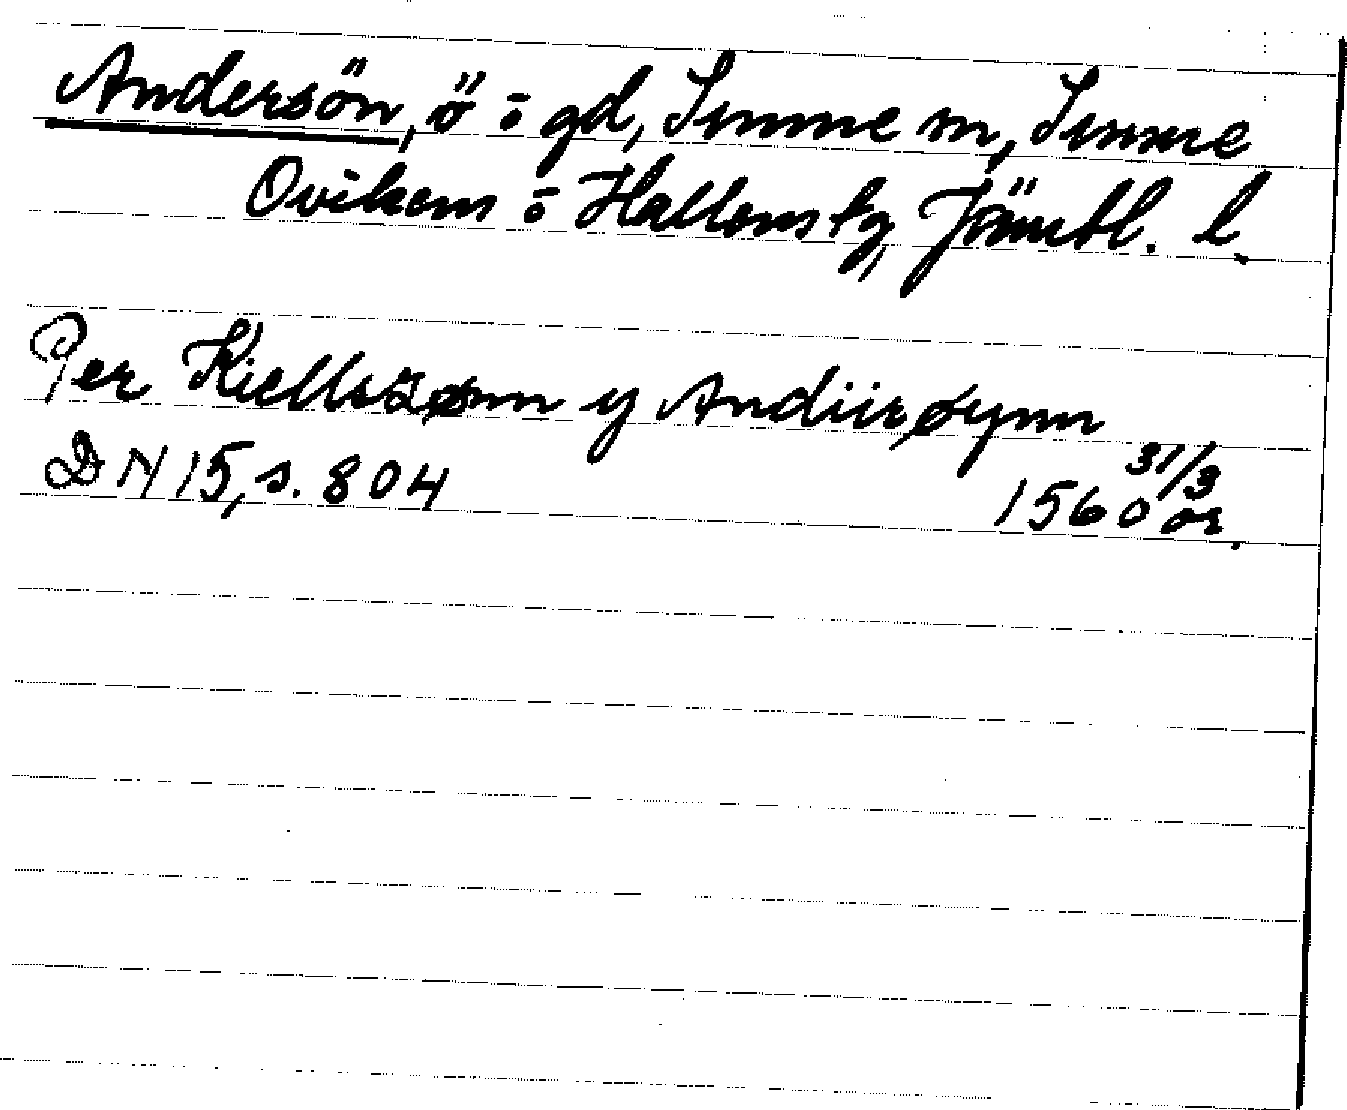 Andersön, ö o gd, Sunne sn, Sunne
Ovikens o Hallens tg, Jämtl. l.
Per Kiellszønn y Andiirøynn
DN 15, s. 804 1560 31/3 or.